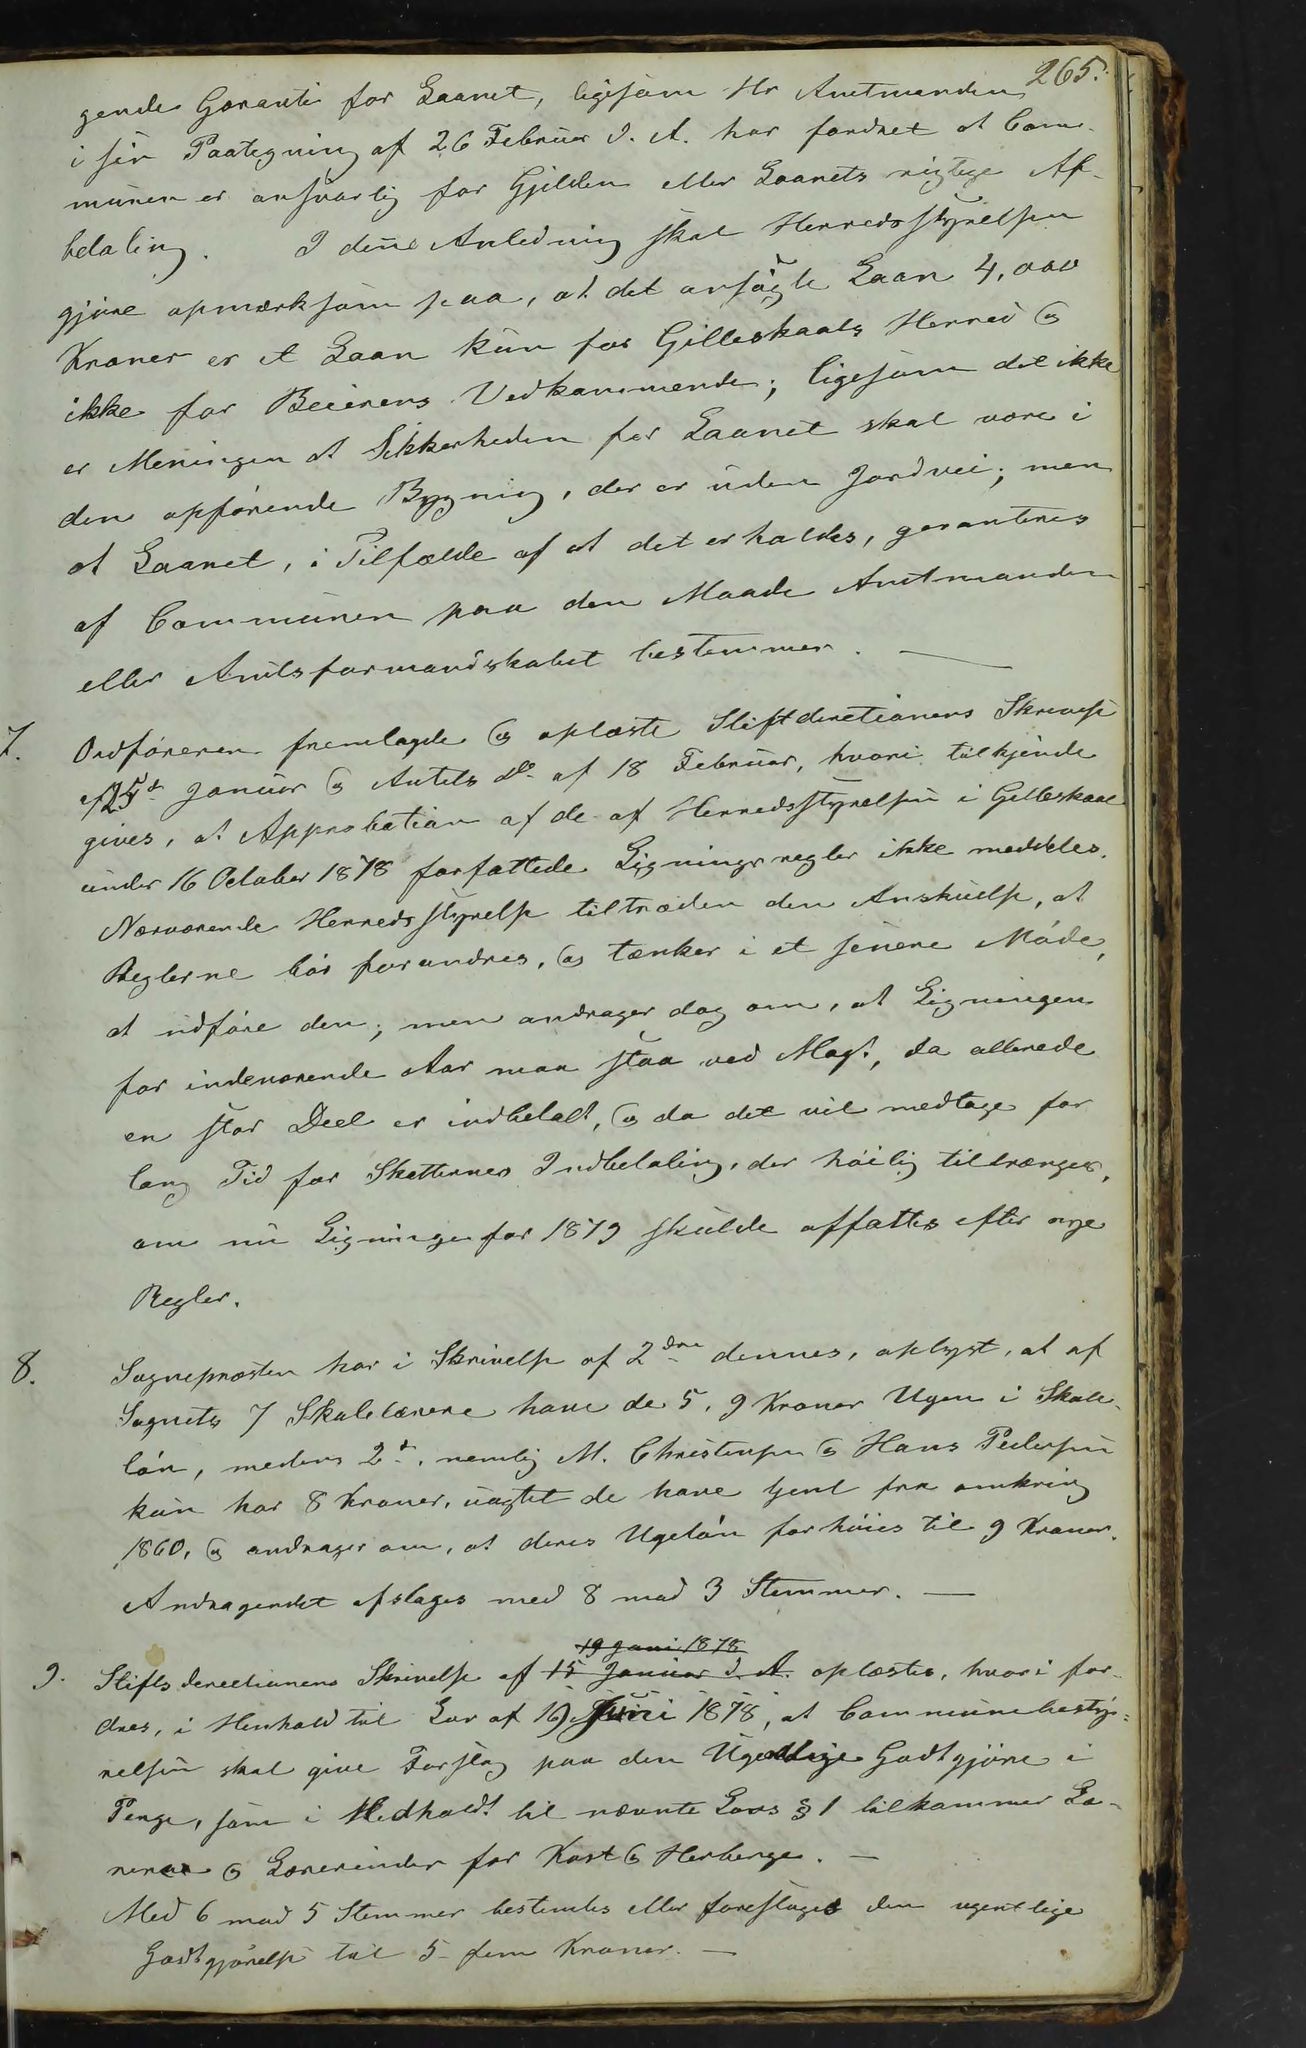 265.
gende Garanti for Laanet, ligesom Hr Amtmanden
i sin Paategning af 26 Februar d. A. har fordret at Com-
munen er ansvarlig for Gjelden eller Laanets rigtige Af-
betaling. I denne Anledning skal Herredsstyrelsen
gjøre opmærksom paa, at det ansøgte Laan 4,000
Kroner er et Laan kun for Gilleskaals Herred og
ikke for Beierens Vedkommende; ligesom det ikke
er Meningen at Sikkerheden for Laanet skal være i
den opførende Bygning, der er uden Jordvei; men
at Laanet, i Tilfælde af at det erholdes, garanteres
af Communen paa den Maade Amtmanden
eller Amtsformandskabet bestemmer. —
7. Ordføreren fremlagde og oplæste Stiftdirectionens Skrivelse
af 25d Januar og Amtets do af 18 Februar, hvori tilkjende
gives, at Approbation af de af Herredsstyrelsen i Gilleskaal
under 16 October 1878 forfattede Ligningsregler ikke meddeles.
Nærværende Herredsstyrelse tiltræder den Anskuelse, at
Reglerne bør forandres, og tænker i et senere Møde,
at udføre den; men andrager dog om, at Ligningen
for indeværende Aar maa staa ved Magt, da allerede
en stor Deel er indbetalt, og da det vil medtage for
lang Tid for Skatternes Indbetaling, der høilig tiltrænges,
om nu Ligningen for 1879 skulde affattes efter nye
Regler.
8. Sognepræsten har i Skrivelse af 2den dennes, oplyst, at af
Sognets 7 Skolelærere have de 5, 9 Kroner Ugen i Skole-
løn, medens 2d, nemlig M. Christensen og Hans Pedersen
kun har 8 Kroner, uagtet de have tjent fra omkring
1860, og andrager om, at deres Ugeløn forhøies til 9 Kroner.
Andragendet afslages med 8 mod 3 Stemmer. —
19 Juni 1878
9. Stiftsdirectionens Skrivelse af 15 Januar d. A. oplæstes, hvori for-
dres, i Henhold til Lov af 19 Juni 1878, at Communebesty-
relsen skal give Forslag paa den Ugentlige Godtgjøre i
Penge, som i Medhold til nævnte Lovs § 1 tilkommer Læ-
rerne og Lærerinder for Kost og Herberge. —
Med 6 mod 5 Stemmer bestemtes eller foresloges den ugentlige
Godtgjørelse til 5 - fem Kroner. —